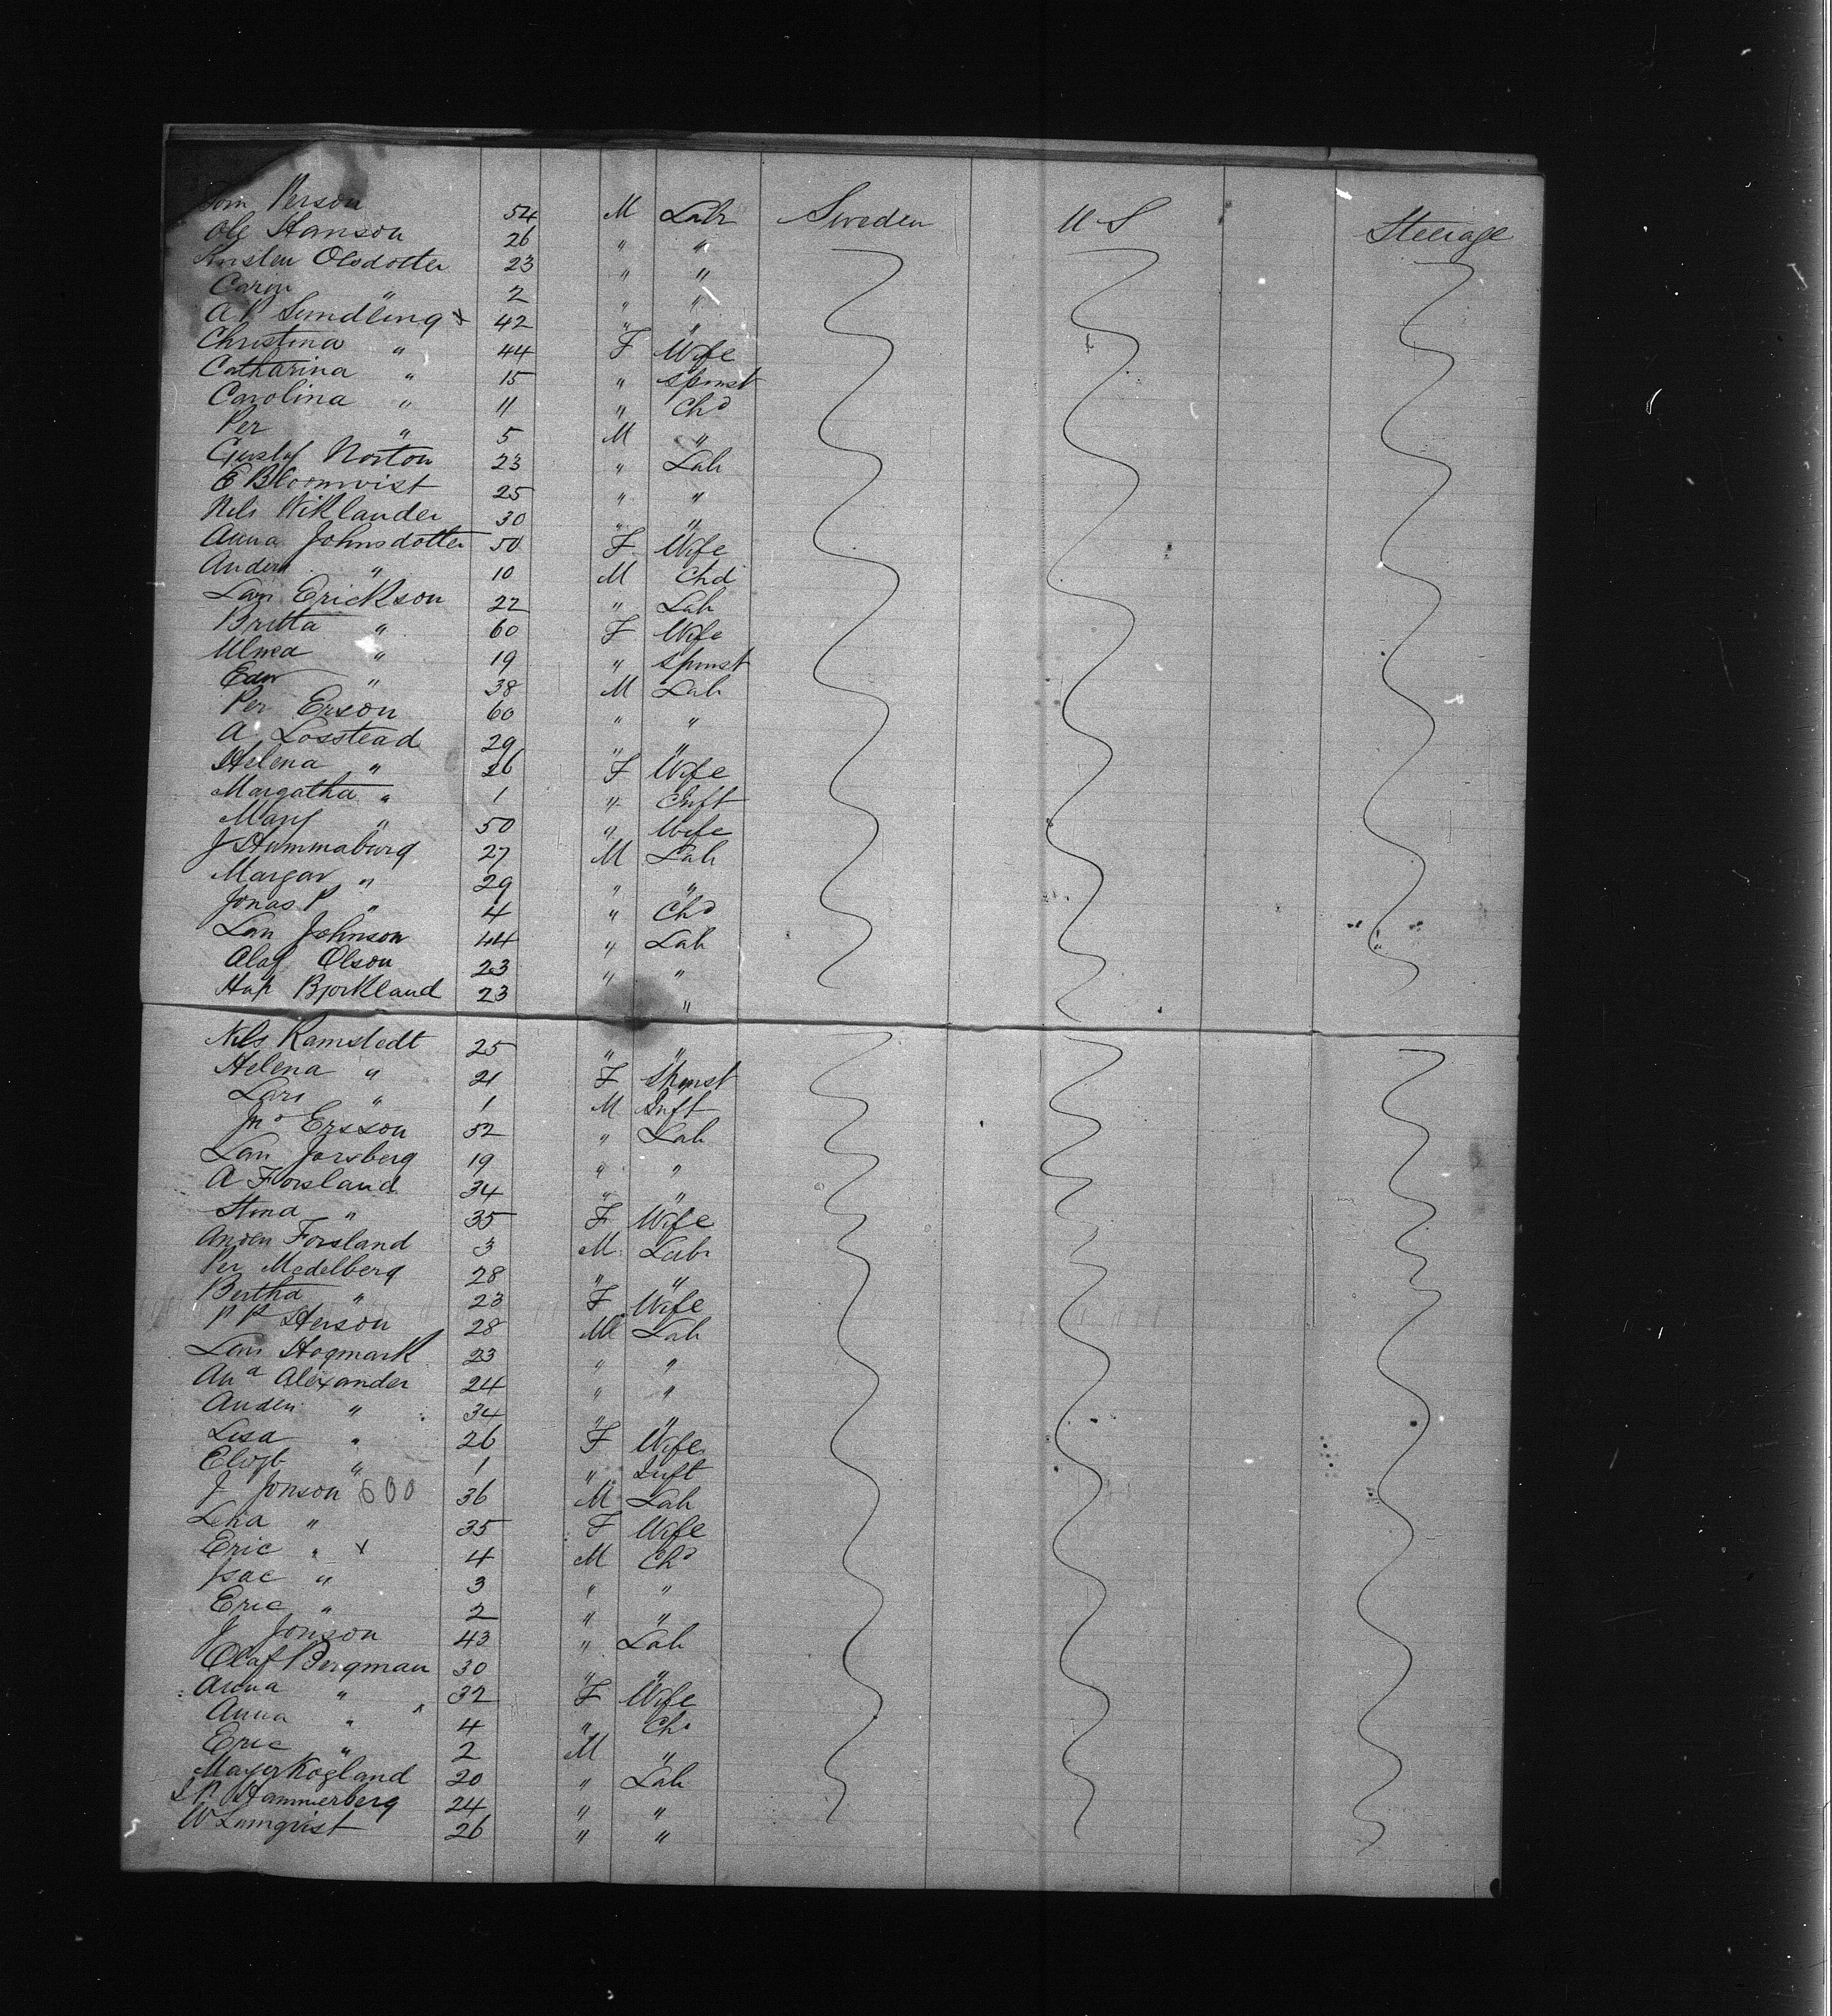 Person 54 M Lab Sweden U S Steerage
Ole Hanson 26 " "
Kirsten Olsdotter 23 " "
Caren " 2 " "
A P Sundling x 42 " "
Christina " 44 F Wife
Catharina " 15 " Spinst
Carolina " 11 " Chd
Per " 5 M "
Gustaf Norton 23 " Lab
E Bloomvist 25 " "
Nils Wiklander 30 " "
Anna Johnsdotter 50 F Wife
Anders " 10 M Chd
Lars Erickson 22 " Lab
Britta " 60 F Wife
Ulmea " 19 " Spinst
Edw " 38 M Lab
Per Erson 60 " "
A Losstead 29 " "
Helena " 26 F Wife
Margatha " 1 " Inft
Mary " 50 " Wife
J Hummaburg 27 M Lab
Margar " 29 " "
Jonas P " 4 " Chd
Lars Johnson 44 " Lab
Alaf Olson 23 " "
Bjorkland 23 "
Nils Ramstedt 25 " "
Helena " 21 F Spinst
Lars " 1 M Inft
Jno Ersson 52 " Lab
Lars Jorsberg 19 " "
A Forsland 34 " "
Stina " 35 F Wife
Anders Forsland 3 M Lab
Per Medelberg 28 " "
Bertha " 23 F Wife
P P Herson 28 M Lab
Lars Hogmark 23 " "
Ana Alexander 24 " "
Anders " 34 " "
Lisa " 26 F Wife
" 1 " Inft
J Jonson 600 36 M Lab
Lena " 35 F Wife
Eric " x 4 M Chd
Isac " 3 " "
Eric " 2 " "
J Jonson 43 " Lab
Olaf Bergman 30 " "
Anna " 32 F Wife
Anna " 4 " Chd
Eric " 2 M "
Mayer Kogland 20 " Lab
Hammerberg 24 " "
W Lamqvist 26 " "